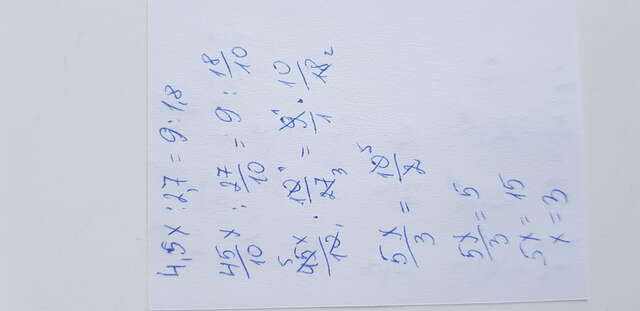 4,5x : 2,7 = 9 : 1,8
45/10 x : 27/10 = 9 : 18/10
45x/10 · 10/27 = 9/1 · 10/18
5 1 1 3 1 2
5x/3 = 10/2
5
5x/3 = 5
5x = 15
x = 3